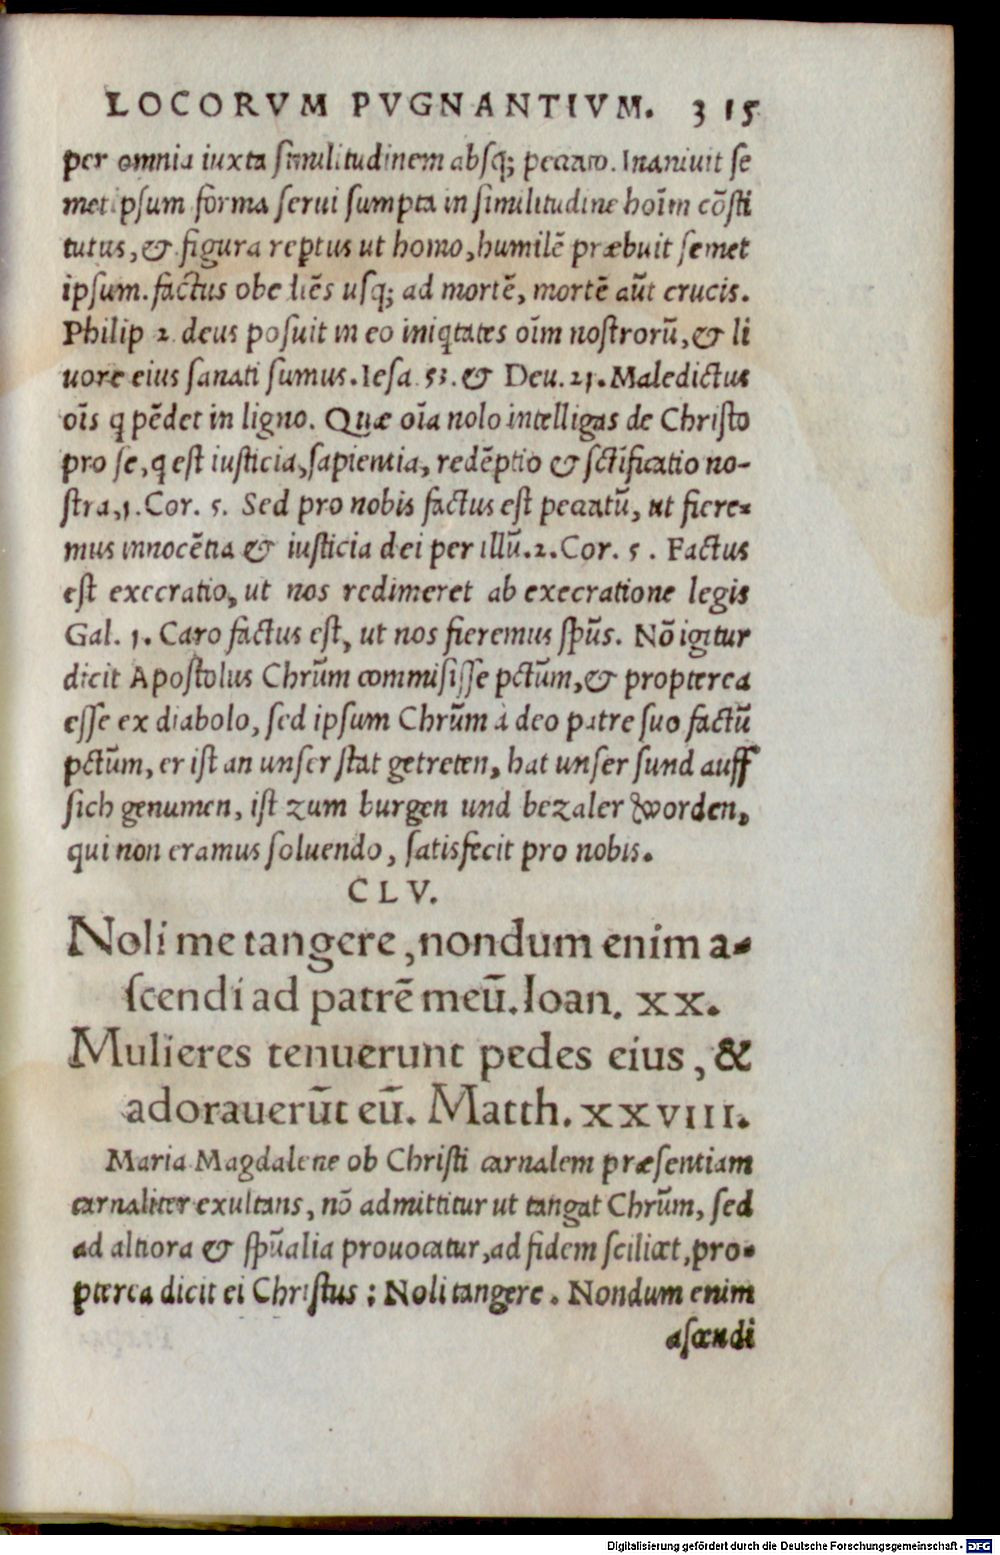 LOCORVM PVGNANTIVM. 315
per omnia iuxta similitudinem absq; peccato. Inaniuit se
metipsum forma serui sumpta in similitudine hoĩm cõsti
tutus, & figura reptus ut homo, humilẽ præbuit semet
ipsum. factus obediẽs usq; ad mortẽ, mortẽ aũt crucis.
Philip 2. deus posuit in eo iniqtates oĩm nostrorũ, & li
uore eius sanati sumus. Iesa. 53. & Deu. 21. Maledictus
oĩs q pẽdet in ligno. Quæ oĩa nolo intelligas de Christo
pro se, q est iusticia, sapientia, redẽptio & sctĩficatio no-
stra, 1. Cor. 5. Sed pro nobis factus est peccatũ, ut fiere-
mus innocẽtia & iusticia dei per illũ. 2. Cor. 5. Factus
est execratio, ut nos redimeret ab execratione legis
Gal. 1. Caro factus est, ut nos fieremus spũs. Nõ igitur
dicit Apostolus Chrũm commisisse pctũm, & propterea
esse ex diabolo, sed ipsum Chrũm à deo patre suo factũ
pctũm, er ist an unser stat getreten, hat unser sund auff
sich genumen, ist zum burgen und bezaler worden,
qui non eramus soluendo, satisfecit pro nobis.
CLV.
Noli me tangere, nondum enim a-
scendi ad patrẽ meũ. Ioan. XX.
Mulieres tenuerunt pedes eius, &
adorauerũt eũ. Matth. XXVIII.
Maria Magdalene ob Christi carnalem præsentiam
carnaliter exultans, nõ admittitur ut tangat Chrũm, sed
ad altiora & spũalia prouocatur, ad fidem scilicet, pro-
pterea dicit ei Christus : Noli tangere. Nondum enim
ascendi
Digitalisierung gefördert durch die Deutsche Forschungsgemeinschaft - DFG